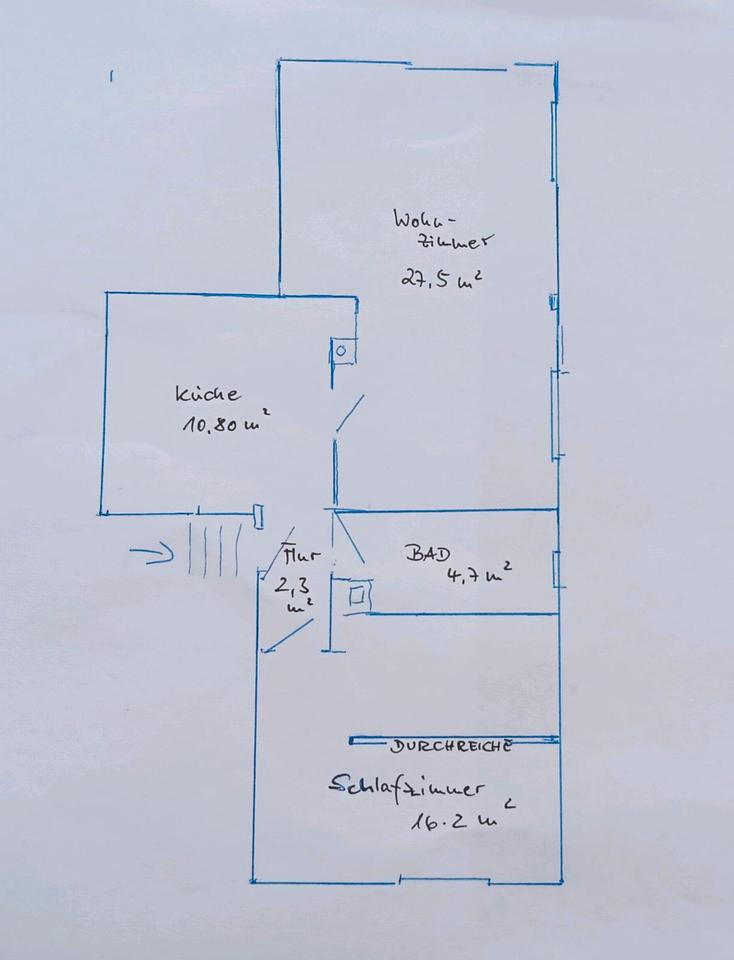 Wohn-
zimmer
27,5 m²
Küche
10,80 m²
Flur
2,3
m²
BAD
4,7 m²
DURCHREICHE
Schlafzimmer
16.2 m²